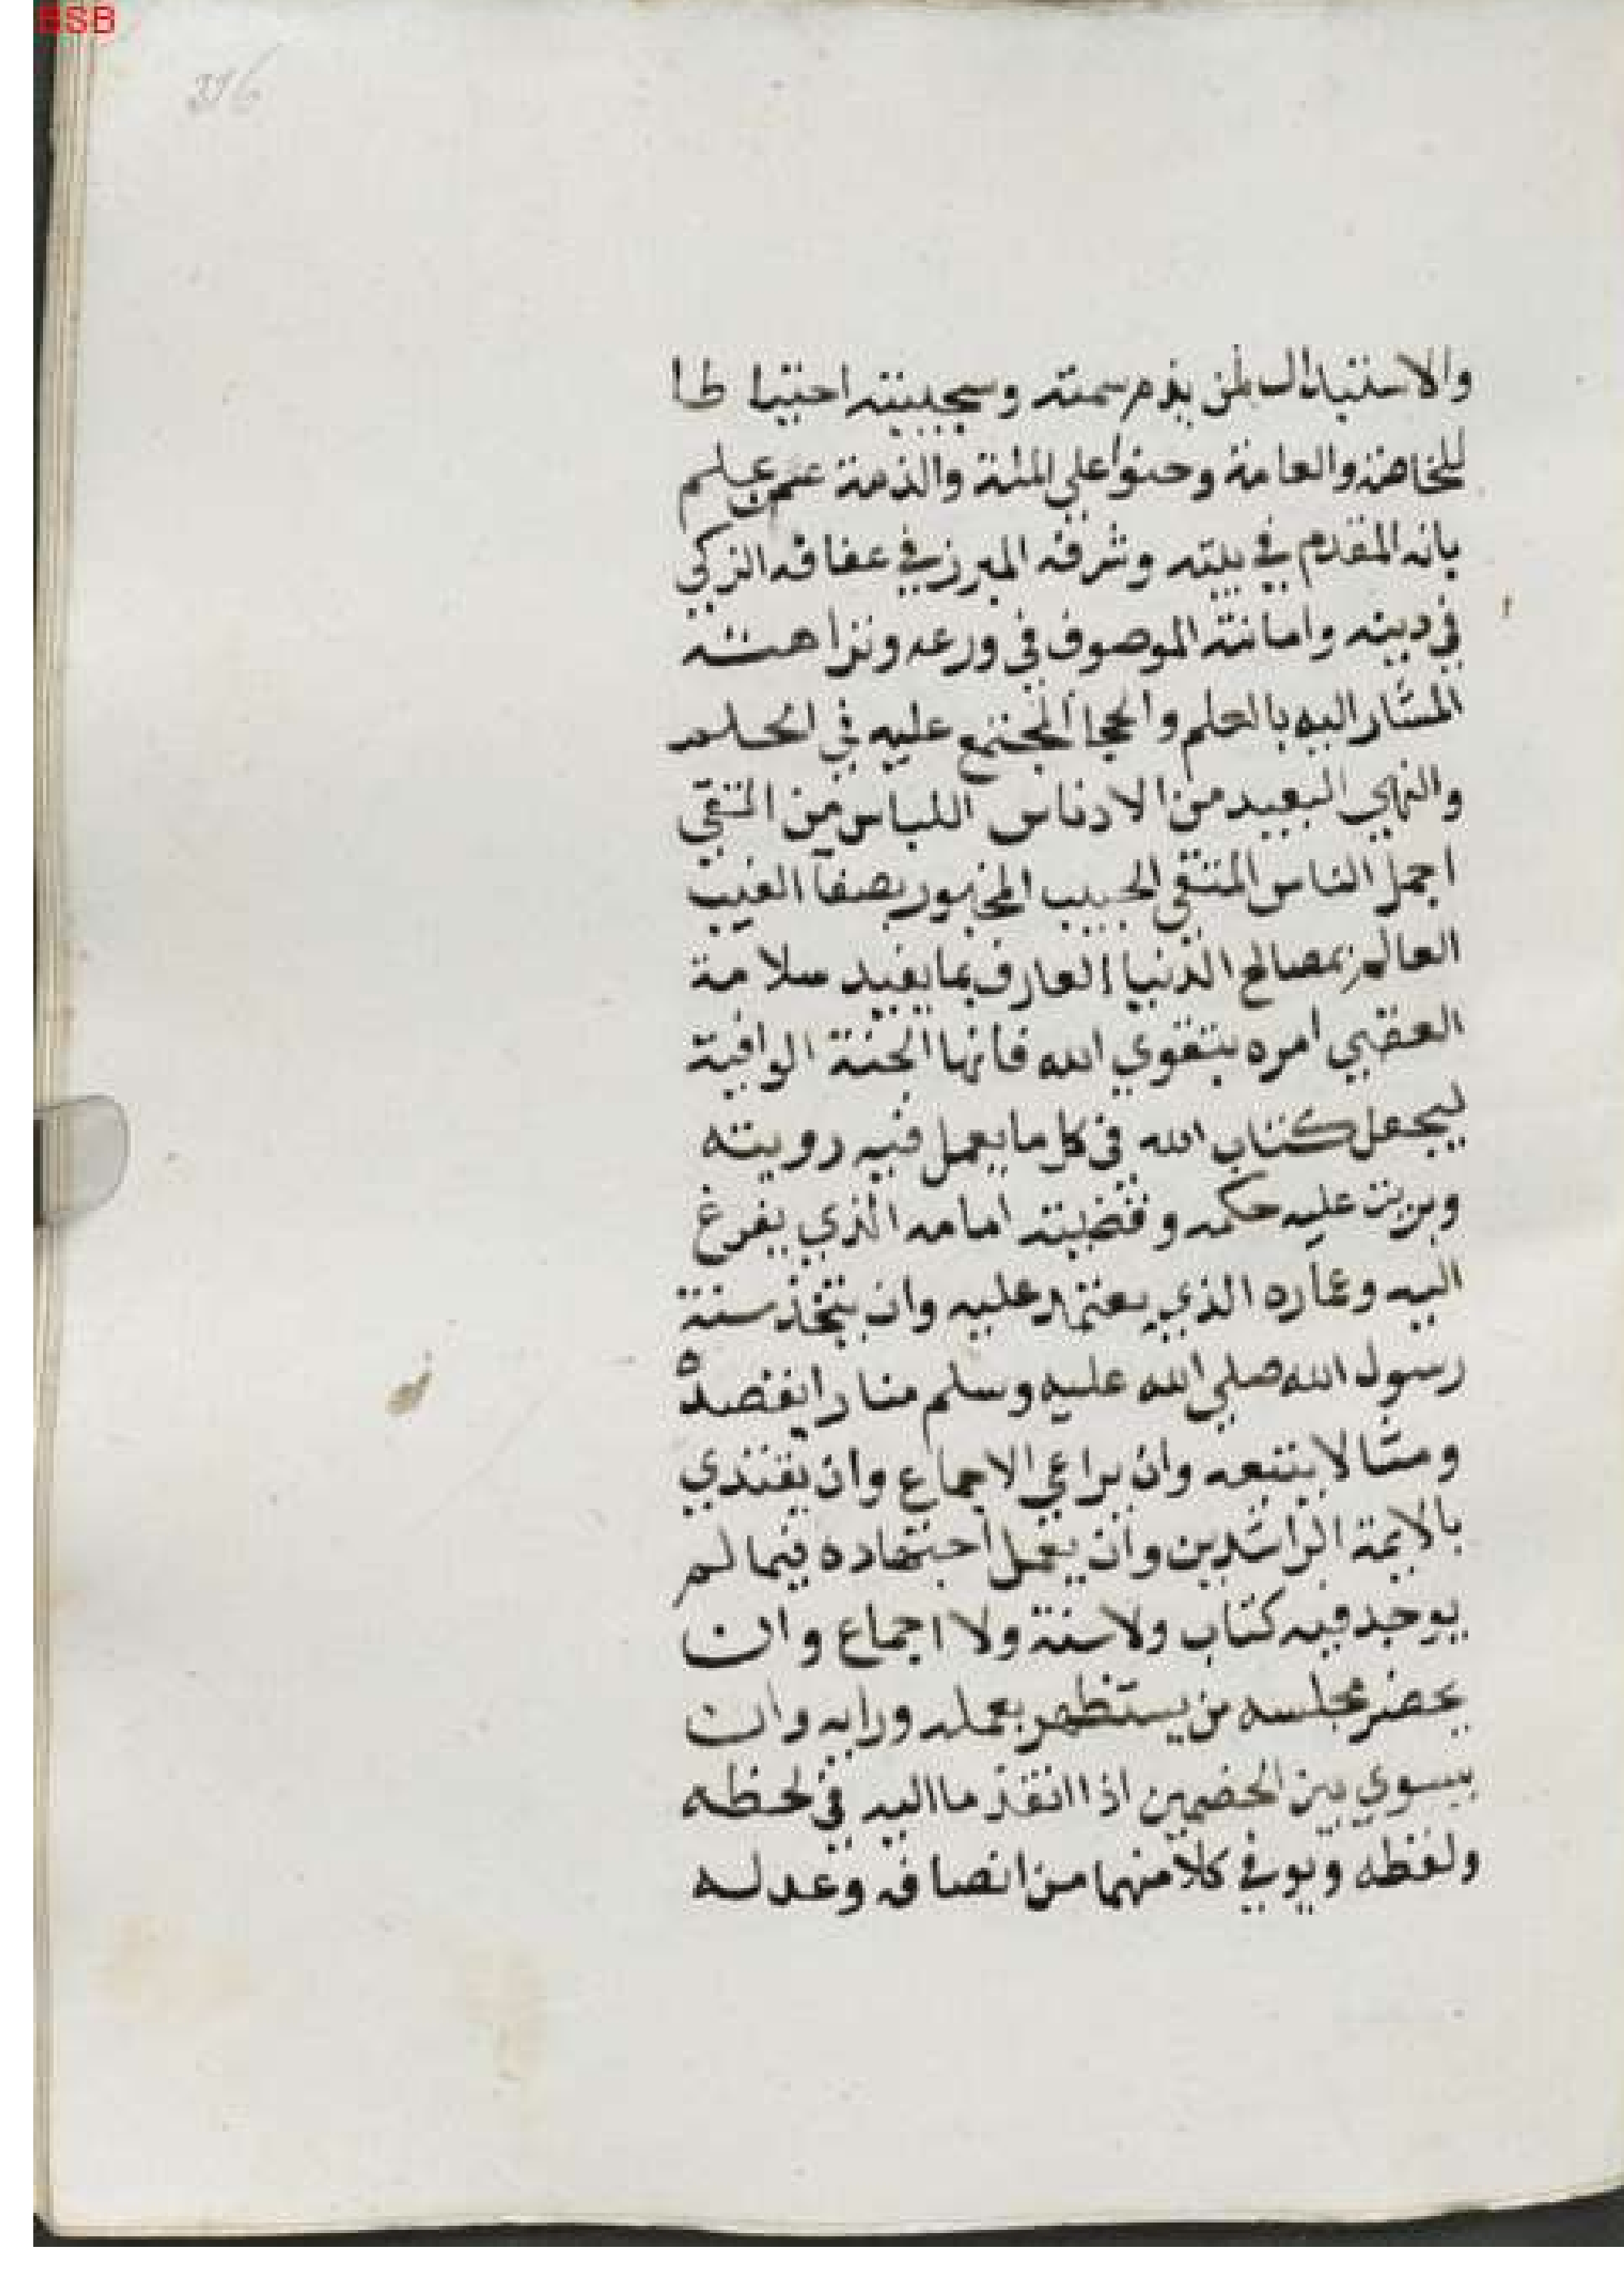 BSB
216
والاستبدال لمن يذم سمته وسجيته احتياطا
للخاصة والعامة وحنوا على الملة والذمة عنـ علم
بانه المقدم في بيته وشرفه المبرز في عفافه الزكي
في دينه وامانته الموصوف في ورعه ونزاهته
المشار اليه بالعلم والحجا المجتمع عليه في الحلم
والنهي البعيد من الادناس اللباس من التقي
اجمل الناس المنتقى الحبيب المخمور بصفآ الغيب
العالم بمصالح الدنيا العارف بما يفيد سلامة
العقبي امره بتقوي الله فانها الجنة الواقية
ليجعل كتاب الله في كل ما يعمل فيه رويته
ويرتب عليه حكمه وقضيته امامه الذي يفرغ
اليه وعماره الذي يعتمد عليه وان يتخذ سنة
رسول الله صلي الله عليه وسلم منارا يقصده
ومثالا يتبعه وان يراعي الاجماع وان يقتدي
بالايمة الراشدين وان يعمل اجتهاده فيما لم
يوجد فيه كتاب ولا سنة ولا اجماع وان
يحضر مجلسه من يستظهر بعمله ورايه وان
يسوي بين الخصمين اذا اتقدما اليه في لحظه
ولفظه ويوفي كلا منهما من انصافه وعدله